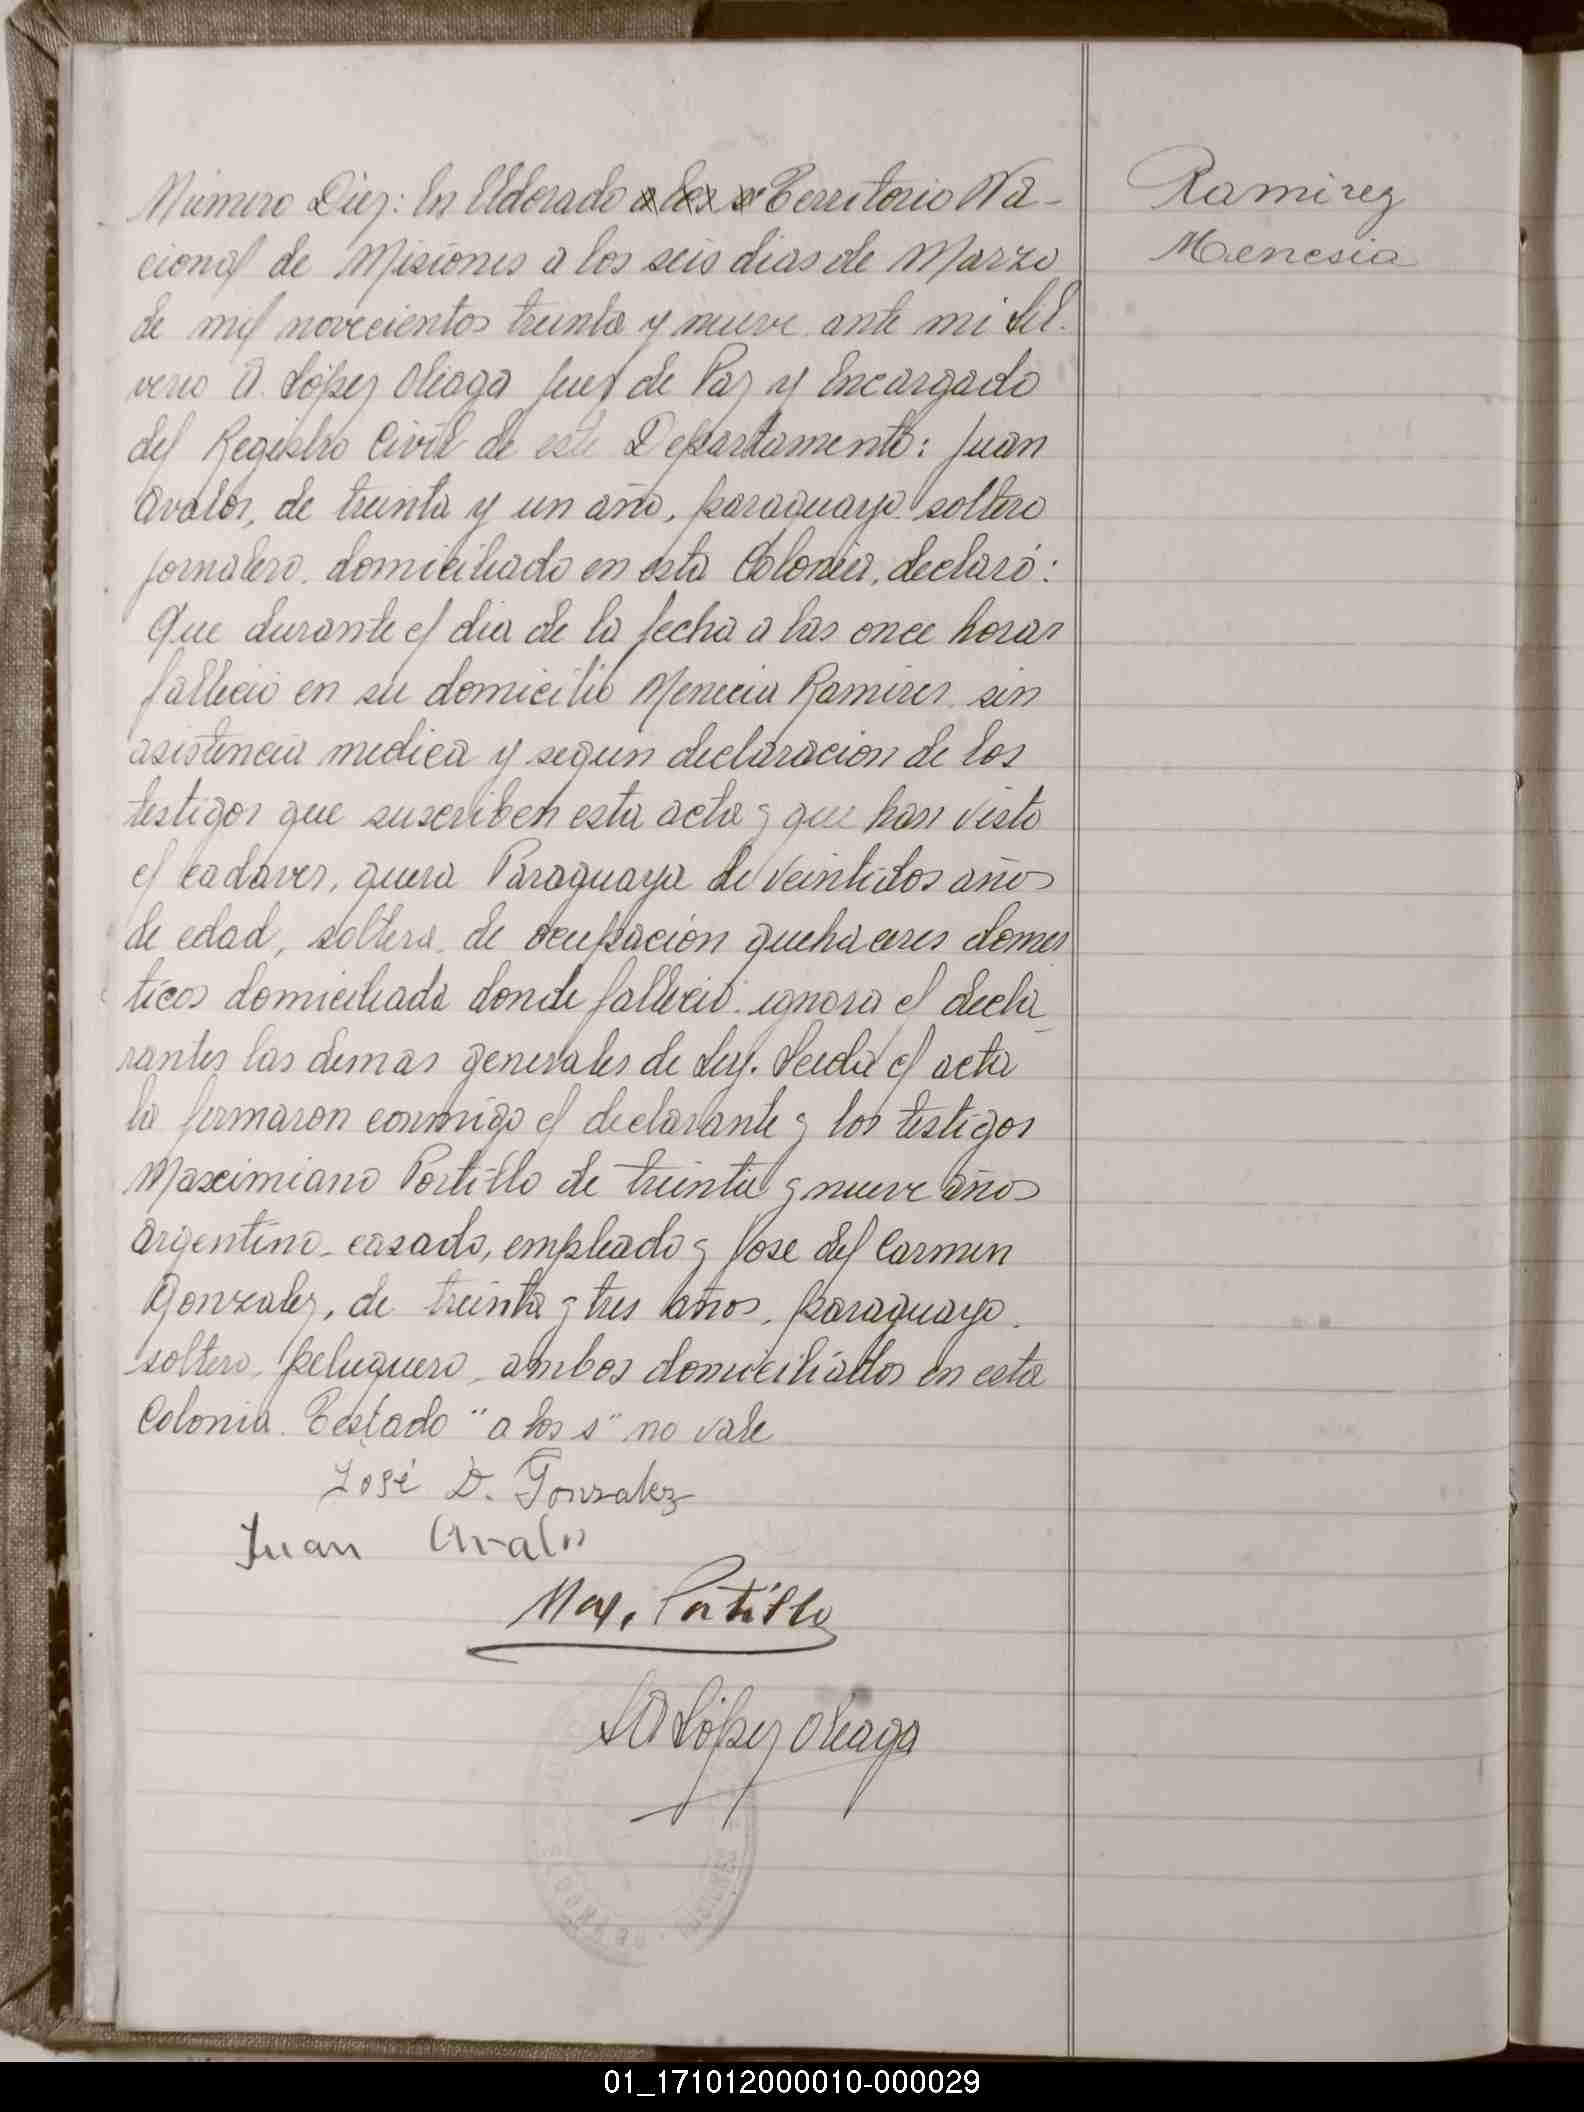 Número Diez: En Eldorado a los s Territorio Na-
cional de Misiones a los seis dias de Marzo
de mil novecientos treinta y nueve ante mi Sil-
verio A. López Oliaga Juez de Paz y Encargado
del Registro Civil de este Departamento: Juan
Avalos, de treinta y un año, paraguayo soltero
jornalero, domiciliado en esta Colonia, declaró:
Que durante el dia de la fecha a las once horas
falleció en su domicilio Menecia Ramires sin
asistencia medica y segun declaracion de los
testigos que suscriben esta acta y que han visto
el cadaver, quera Paraguaya de veintidos años
de edad, soltera, de ocupación quehaceres domes
ticos domiciliada donde falleció. ignora el decla
rantes las demas generales de Ley. Leida el acta
la firmaron conmigo el declarante y los testigos
Maximiano Portillo de treinta y nueve años
argentino, casado, empleado y Jose del Carmen
Gonzalez, de treinta y tres años, paraguayo.
soltero, peluquero, ambos domiciliados en esta
Colonia. Testado "a los s" no vale
José D. Gonzalez
Juan Avalos
Max. Portillo
SA López Oliaga
Ramirez
Menesia
01_171012000010-000029